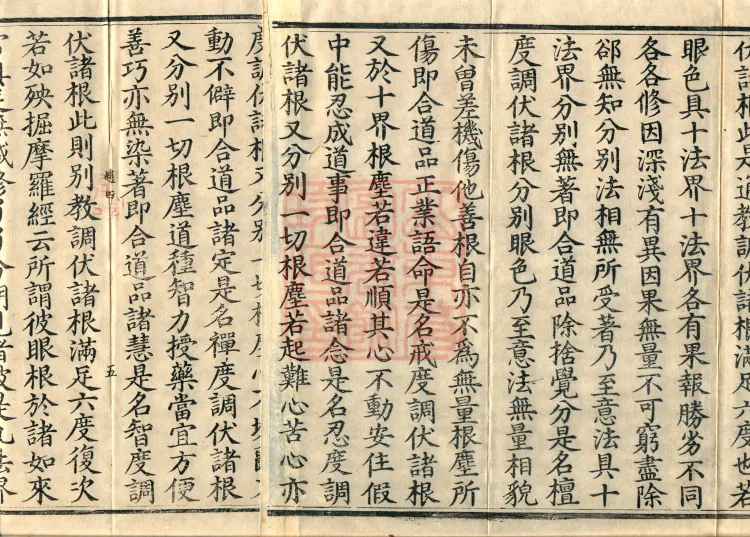 伏諸根此是通教調伏諸根滿足六度也若
眼色具十法界十法界各有果報勝劣不同
各各修因深淺有異因果無量不可窮盡除
郤無知分別法相無所受著乃至意法具十
法界分別無著即合道品除捨覺分是名檀
度調伏諸根分別眼色乃至意法無量相貌
未曾差機傷他善根自亦不爲無量根塵所
傷即合道品正業語命是名戒度調伏諸根
又於十界根塵若違若順其心不動安住假
中能忍成道事即合道品諸念是名忍度調
伏諸根又分別一切根塵若起難心苦心亦
度調伏諸根又分別一切根塵心
動不僻即合道品諸定是名禪度調伏諸根
又分別一切根塵道種智力授藥當宜方便
善巧亦無染著即合道品諸慧是名智度調
五
伏諸根此則別教調伏諸根滿足六度復次
若如殃掘摩羅經云所謂彼眼根於諸如來
常具足無減修